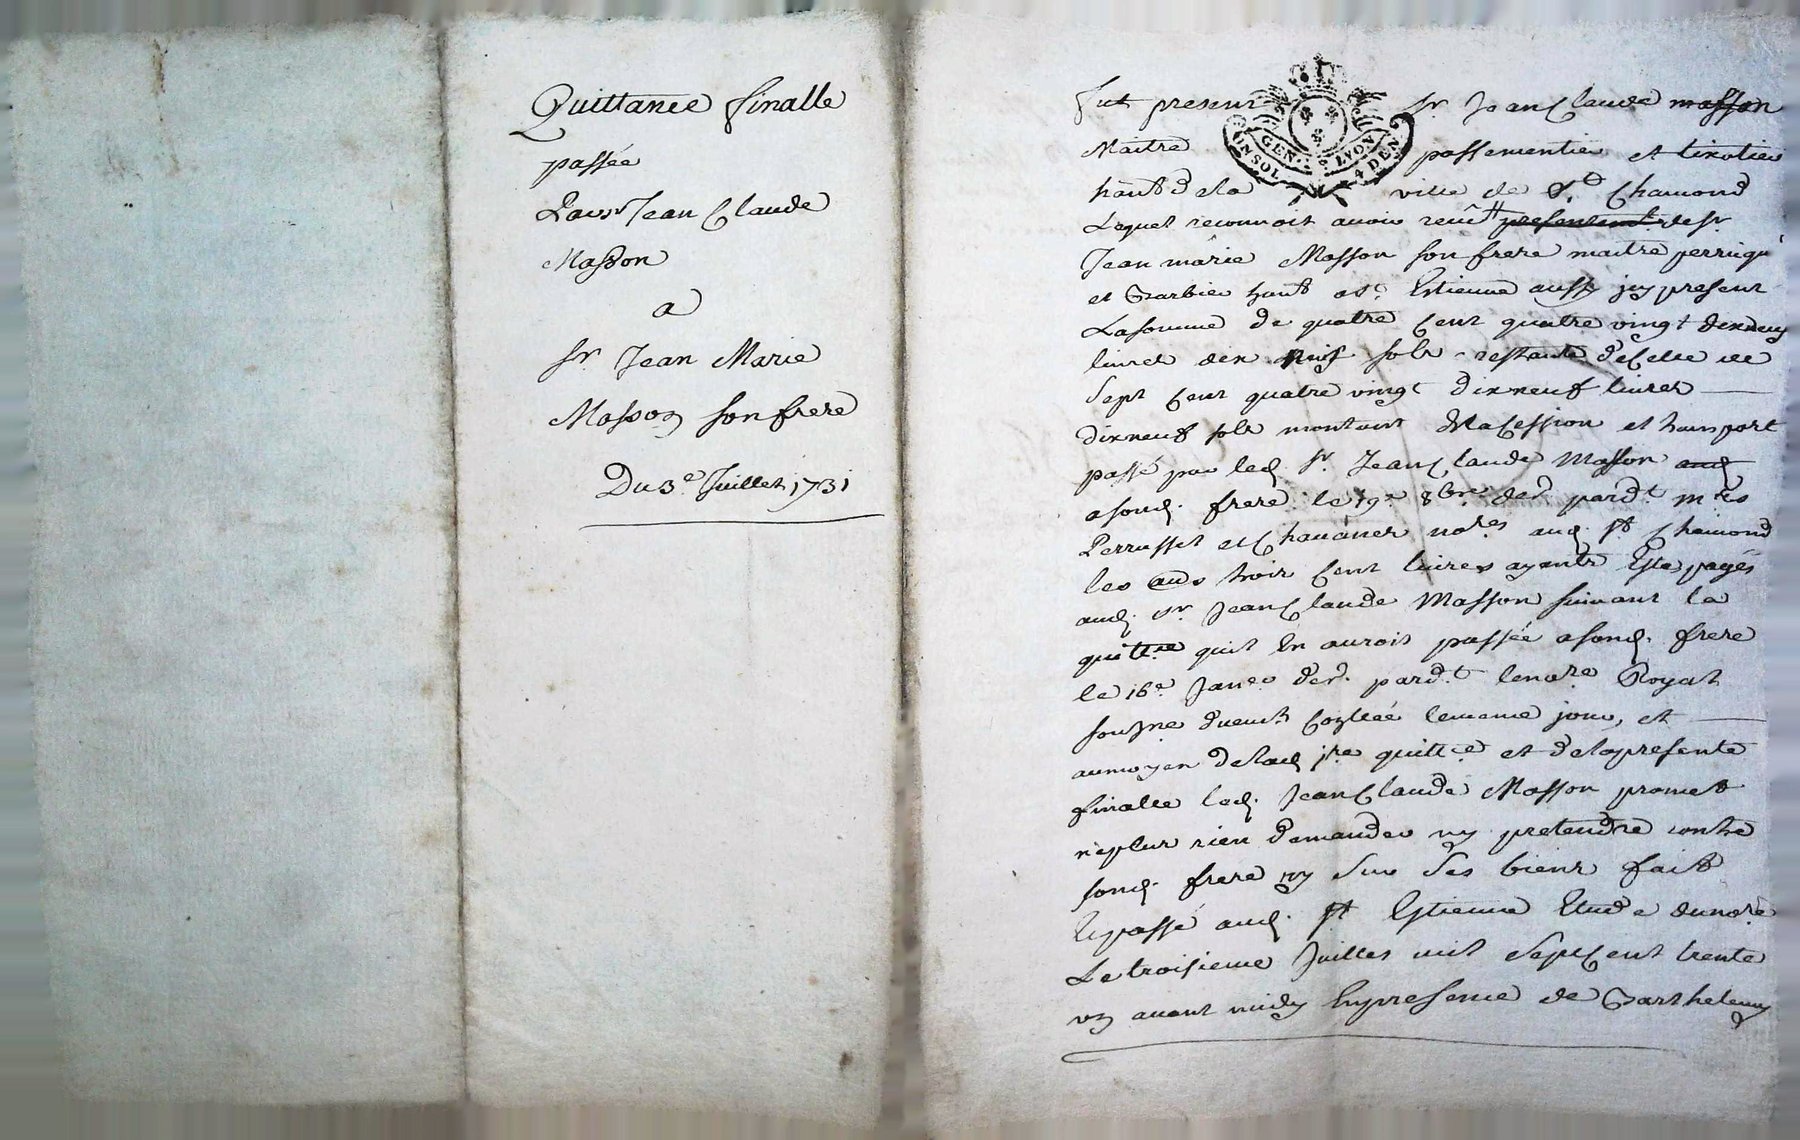 Quittance finalle
passée
Par sr Jean Claude
Masson
a
sr Jean Marie
Masson son frere
Du 3e Juillet 1731
GEN. LYON
4 DEN
fut present sr Jean Claude masson
Maitre passementier et tixotier
habt dela ville de St Chamond
Lequel reconnoit avoir receu presentemt de sr
Jean marie Masson son frere maitre perruqr
et Barbier habt a St Estienne aussy icy present
La somme de quatre cent quatre vingt dixneuf
livres dix neuf sols restante d'icelle de
sept cent quatre vingt dixneuf livres
dixneuf sols montant dela cession et transport
passé par led. sr Jean Claude Masson aud
a sond. frere le 19e 8bre der pardt mtres
Perrussel et Chavanes nores aud. st Chamond
les trois cent livres ayants estes payés
aud. sr Jean Claude Masson suivant la
quittce quil en auroit passée a sond. frere
le 16e Janer der. pardt le nore Royal
soussne duemt conllée le meme jour, et
au moyen de lad. 1re quittce et dela presente
finalle led. Jean Claude Masson promet
ne plus rien demander ny pretendre contre
sond. frere ny sur ses biens fait
et passé aud. st Estienne Etude du nore
Le troisieme Juillet mil sept cent trente
un avant midy en presence de Barthelemy